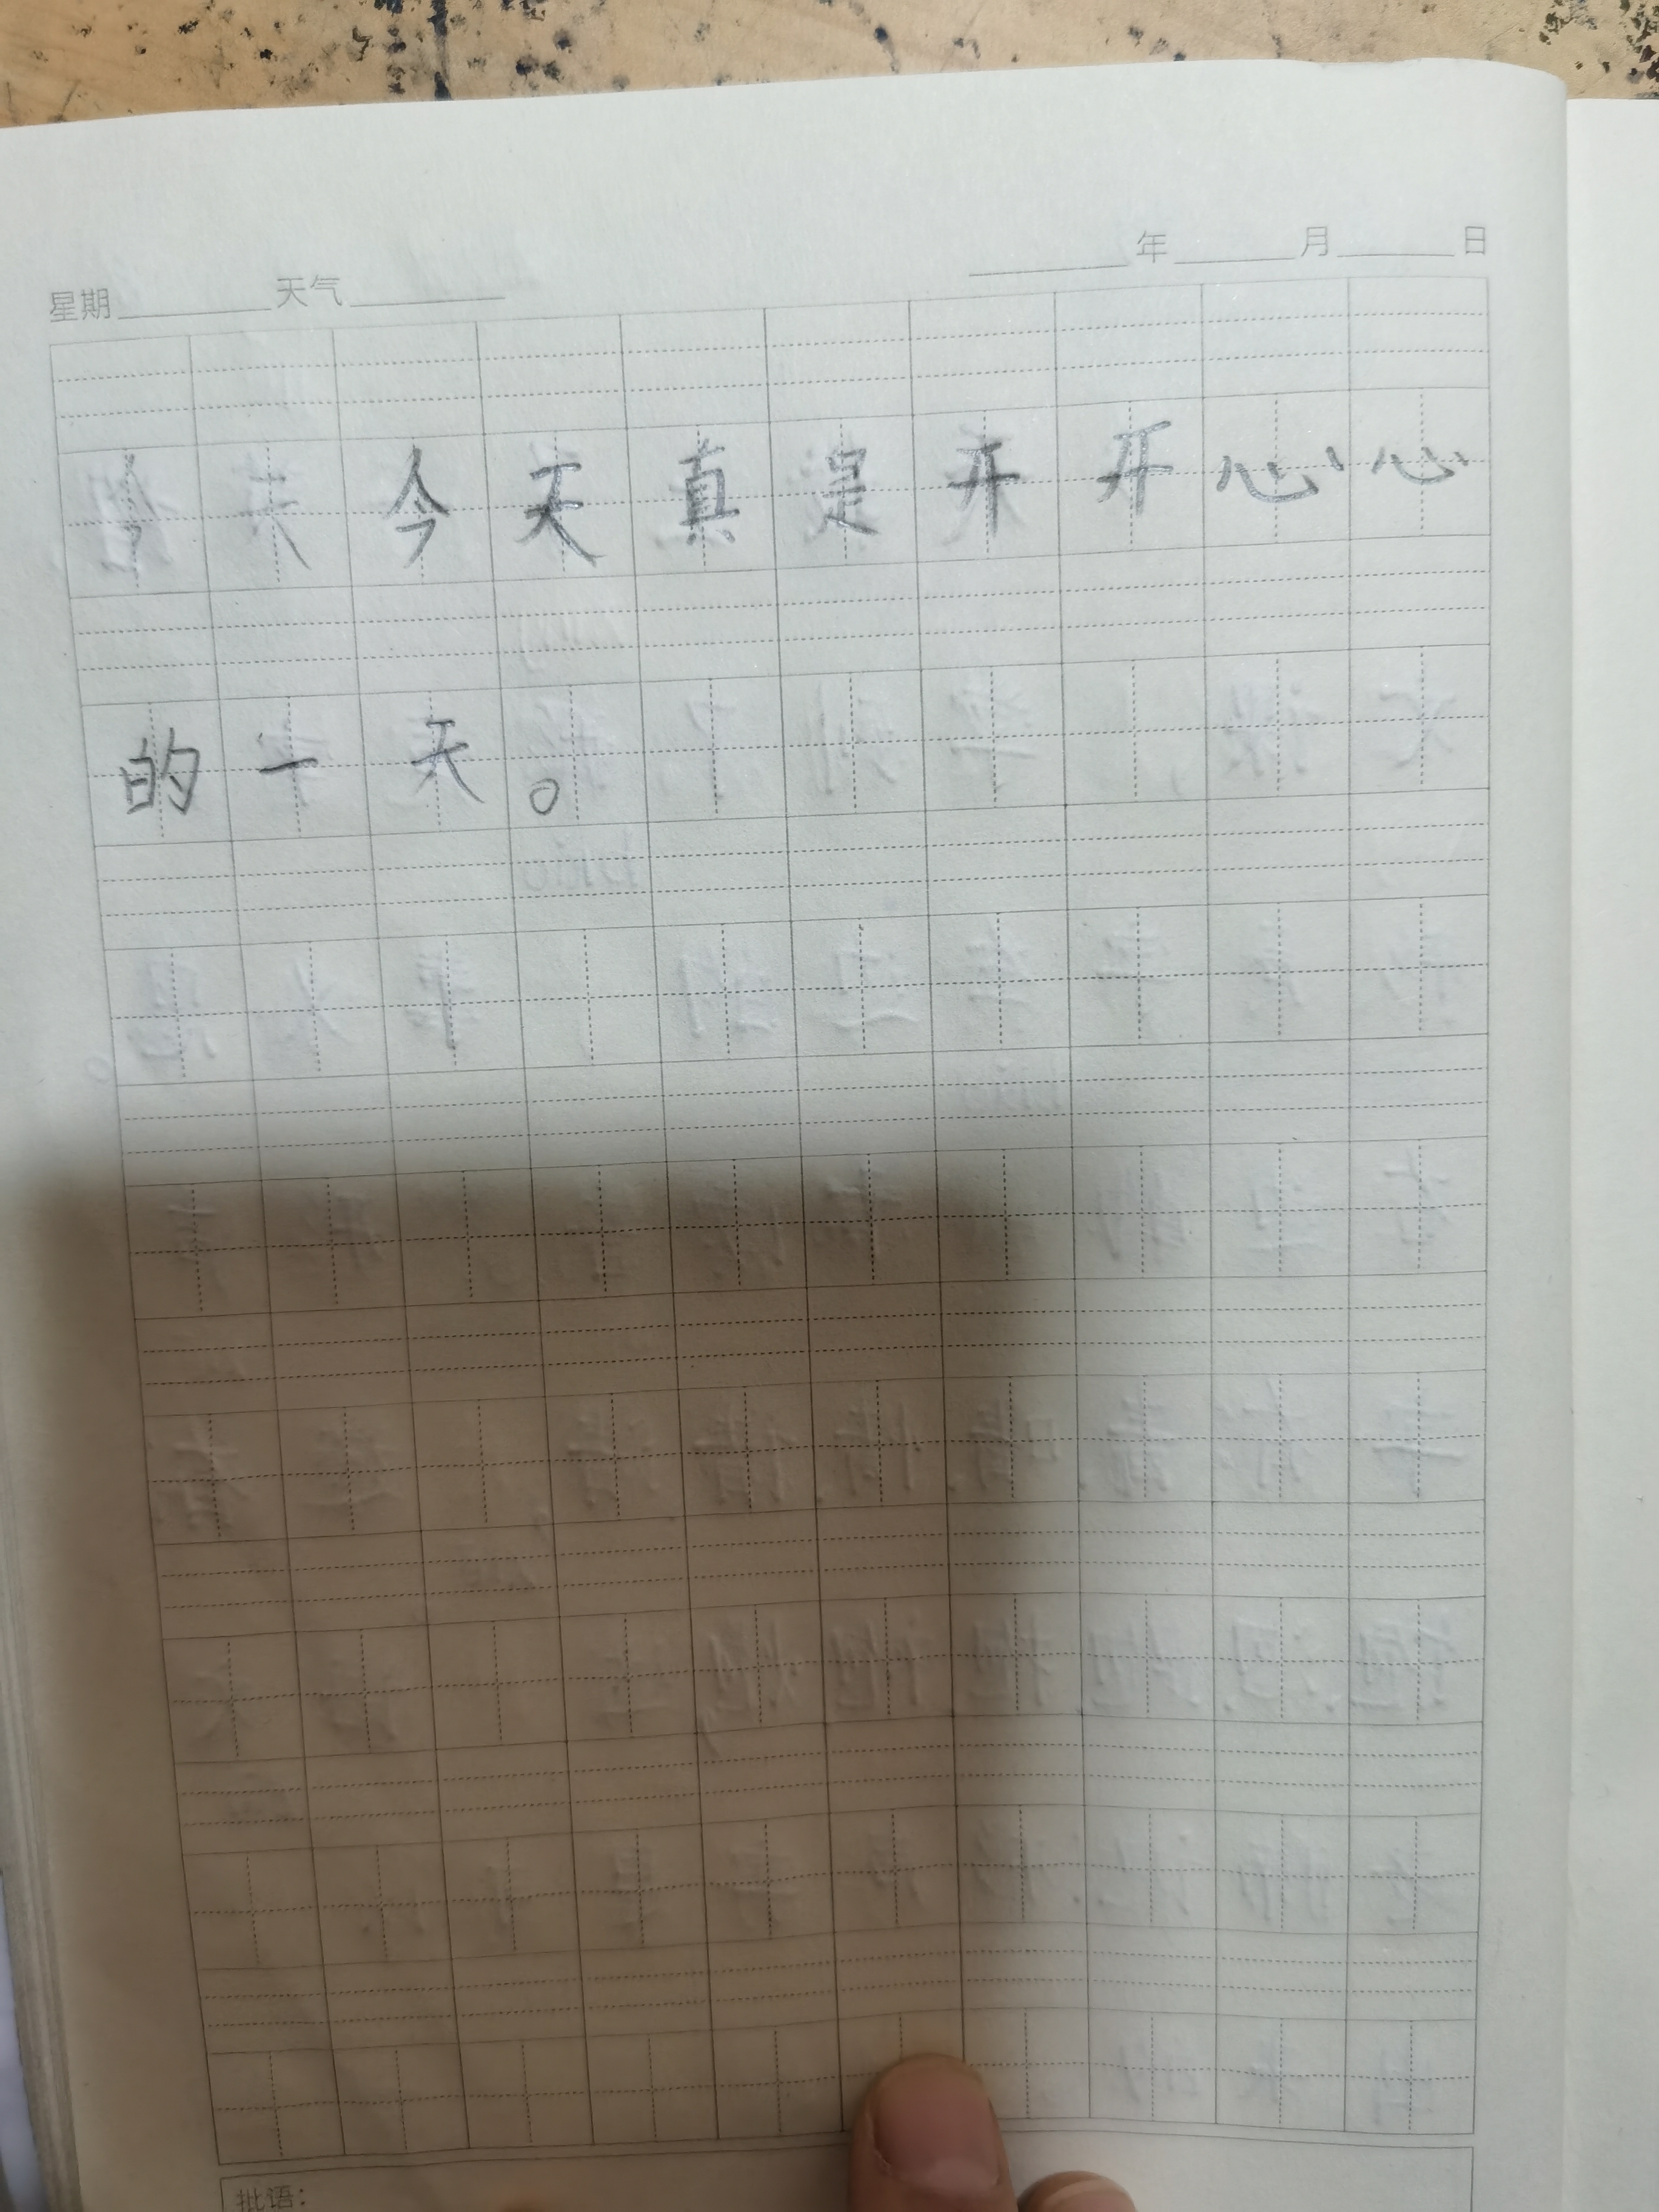 年 月 日
星期 天气
今天今天真是开开心心
的一天。
批语：